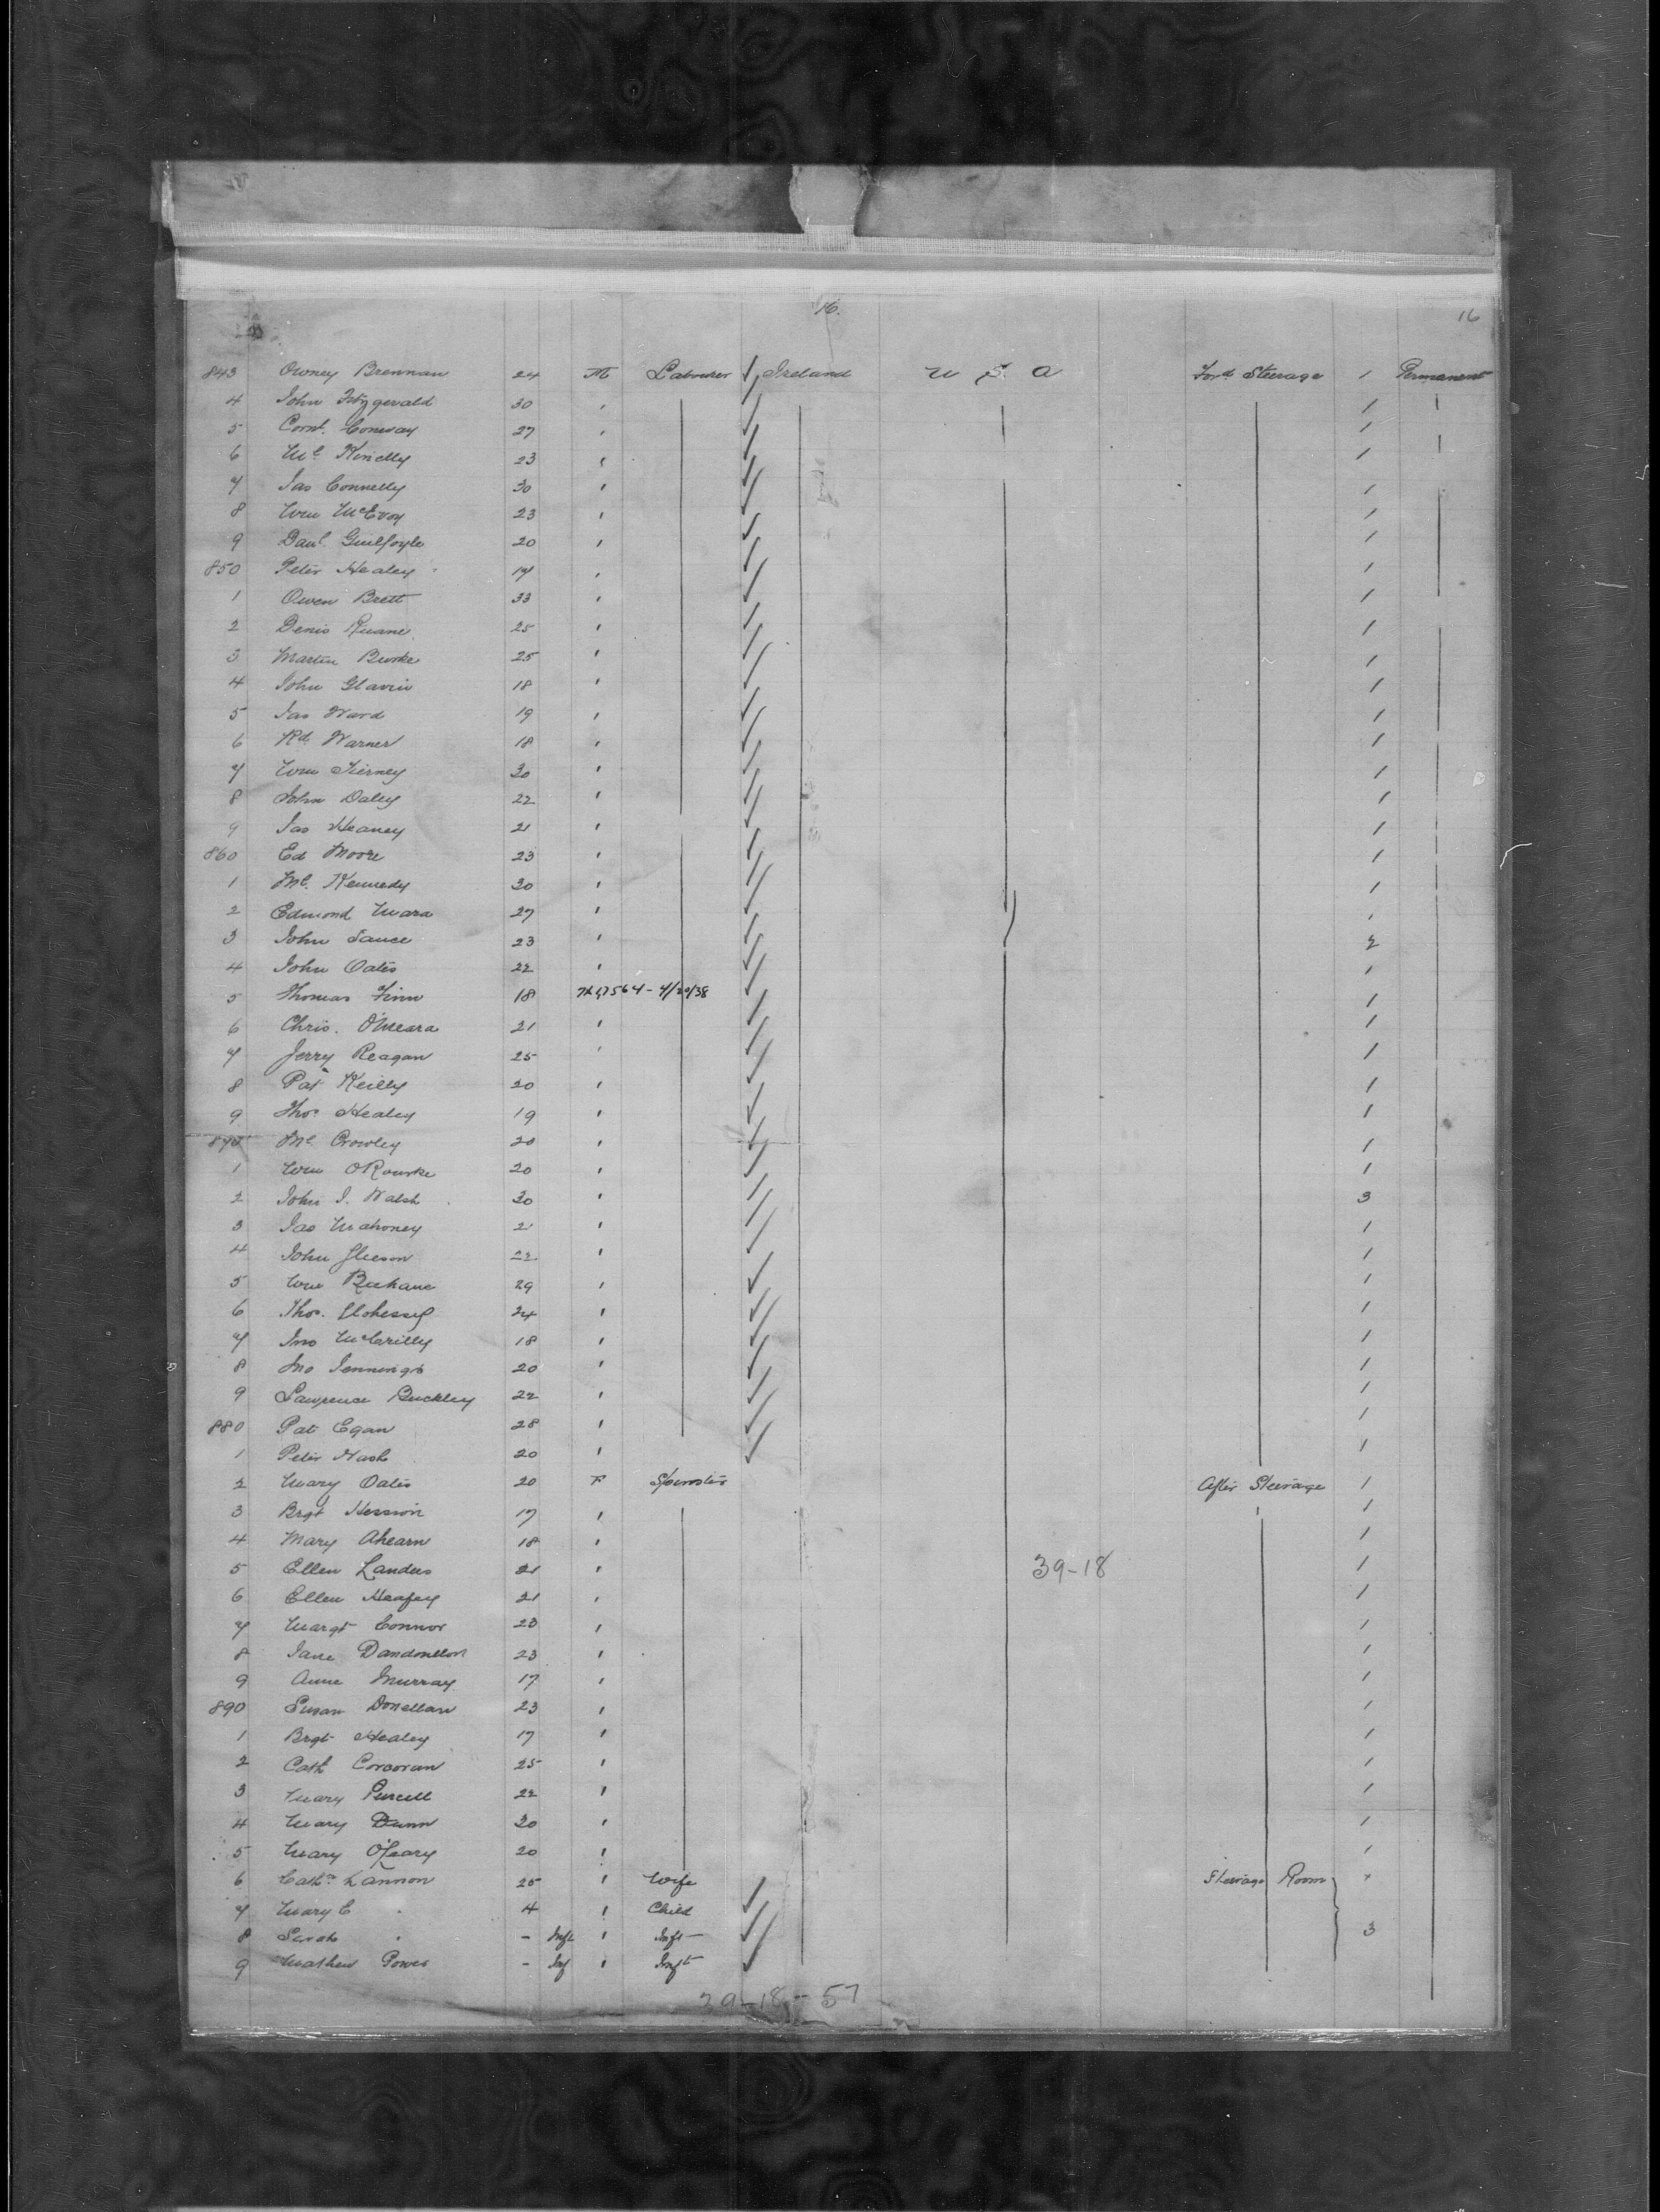 16.
16
843 Owney Brennan 24 M Labourer Ireland U S A Ford Steerage 1 Permanent
4 John Fitzgerald 30 " 1
5 Corns. Conway 27 " 1
6 Ml. Kinelly 23 " 1
7 Jas Connelly 30 " 1
8 Wm McEvoy 23 " 1
9 Danl. Guilfoyle 20 " 1
850 Peter Healey 17 " 1
1 Owen Brett 33 " 1
2 Denis Ruane 25 " 1
3 Martin Burke 25 " 1
4 John Glavin 18 " 1
5 Jas Ward 19 " 1
6 Rd. Warner 18 " 1
7 Wm Tierney 30 " 1
8 John Daley 22 " 1
9 Jas Heaney 21 " 1
860 Ed Moore 23 " 1
1 Ml. Kennedy 30 " 1
2 Edmond Mara 27 "
3 John 23 " 2
4 John Oates 22 " 1
5 Thomas Finn 18 4/20/38 1
6 Chris. O'Meara 21 " 1
7 Jerry Reagan 25 " 1
8 Pat Reilly 20 " 1
9 Thos. Healey 19 " 1
870 Ml. Crowley 20 " 1
1 Wm O'Rourke 20 " 1
2 John J. Walsh 30 " 3
3 Jas Mahoney 21 " 1
4 John Gleeson 22 " 1
5 Wm 29 " 1
6 Thos. Clohessy 24 " 1
7 Jno McCrilly 18 " 1
8 Jno Jennings 20 " 1
9 Lawrence Buckley 22 " 1
880 Pat Egan 28 " 1
1 Peter Nash 20 " 1
2 Mary Oates 20 F Spinster After Steerage 1
3 Brgt Hession 17 " 1
4 Mary Ahearn 18 " 1
5 Ellen Landers 21 " 39-18 1
6 Ellen Heafey 21 " 1
7 Margt Connor 23 " 1
8 Jane 23 " 1
9 Anne Murray 17 " 1
890 Susan Donellan 23 " 1
1 Brgt Healey 17 " 1
2 Cath Corcoran 25 " 1
3 Mary Purcell 22 " 1
4 Mary Dunn 20 " 1
5 Mary O'Leary 20 " 1
6 Cathn. Lannon 25 " Wife Steerage Room
7 Mary C " 4 " Child
8 Sarah " - Inft " Inft 3
9 Mathew Power - Inf " Inft
39-18-57